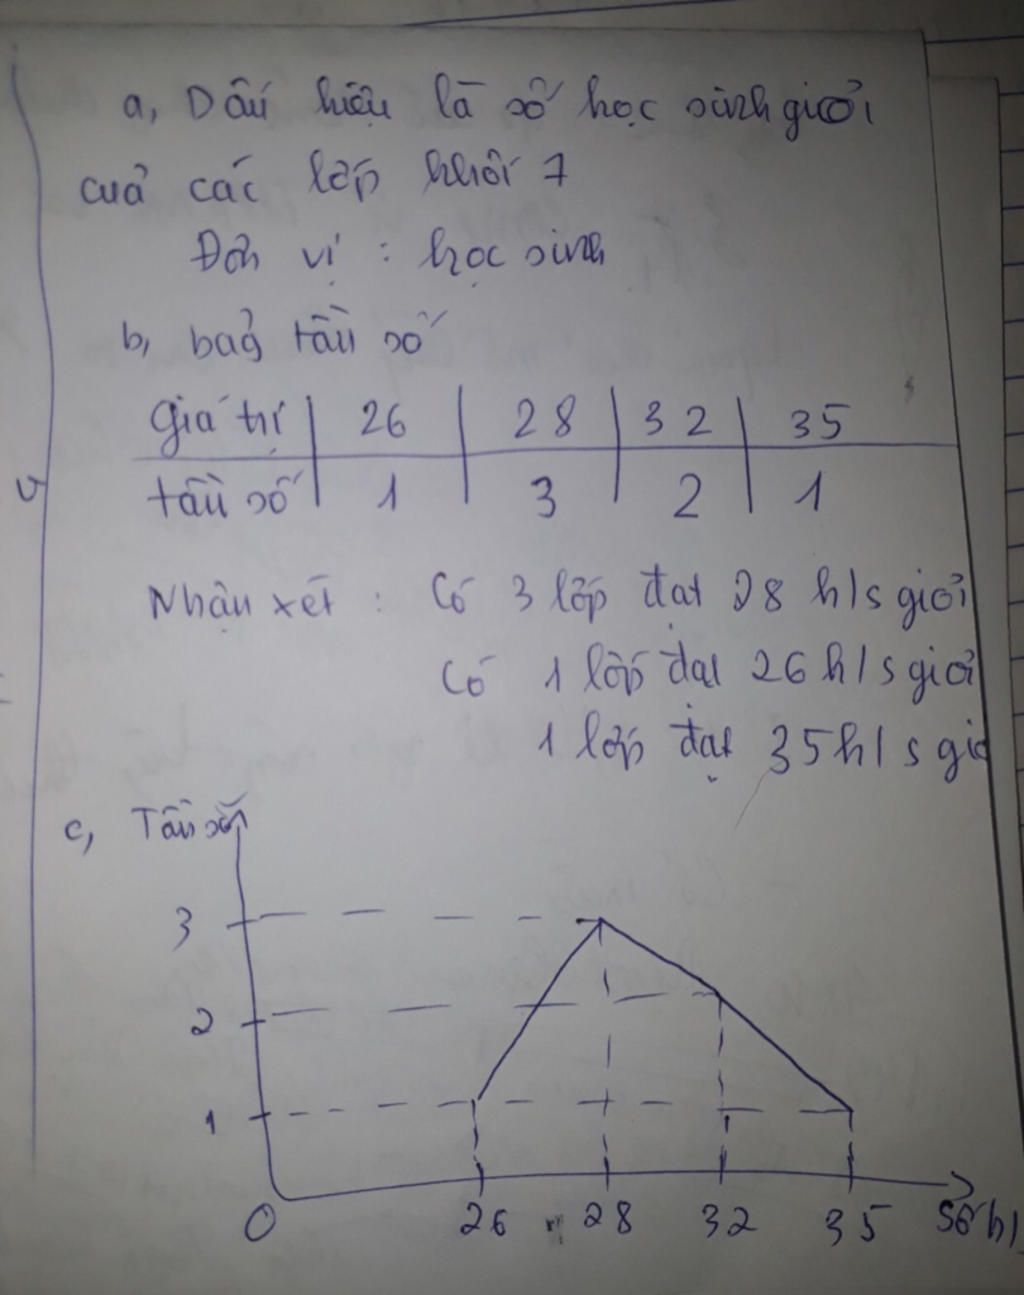 a, Dấu hiệu là số học sinh giỏi
của các lớp khối 7
Đơn vị : học sinh
b, bảg tần số
giá trị 26 28 32 35
tần số 1 3 2 1
Nhận xét : Có 3 lớp đạt 28 h/s giỏi
Có 1 lớp đạt 26 h/s giỏi
1 lớp đạt 35 h/s gio
c, Tần số
3
2
1
0 26 28 32 35 Số h/